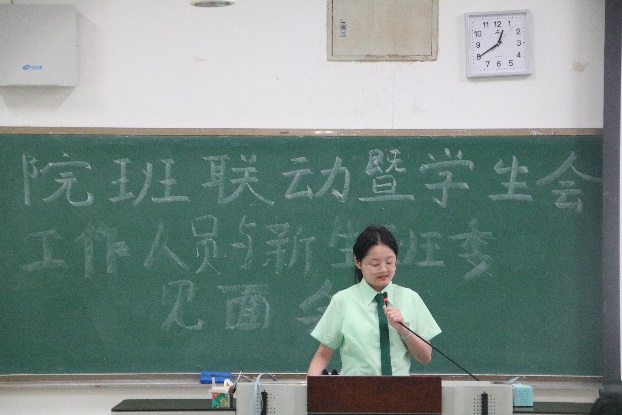 院班联动暨学生会
工作人员与新生班委
见面会
12
1
2
3
4
5
6
7
8
9
10
11